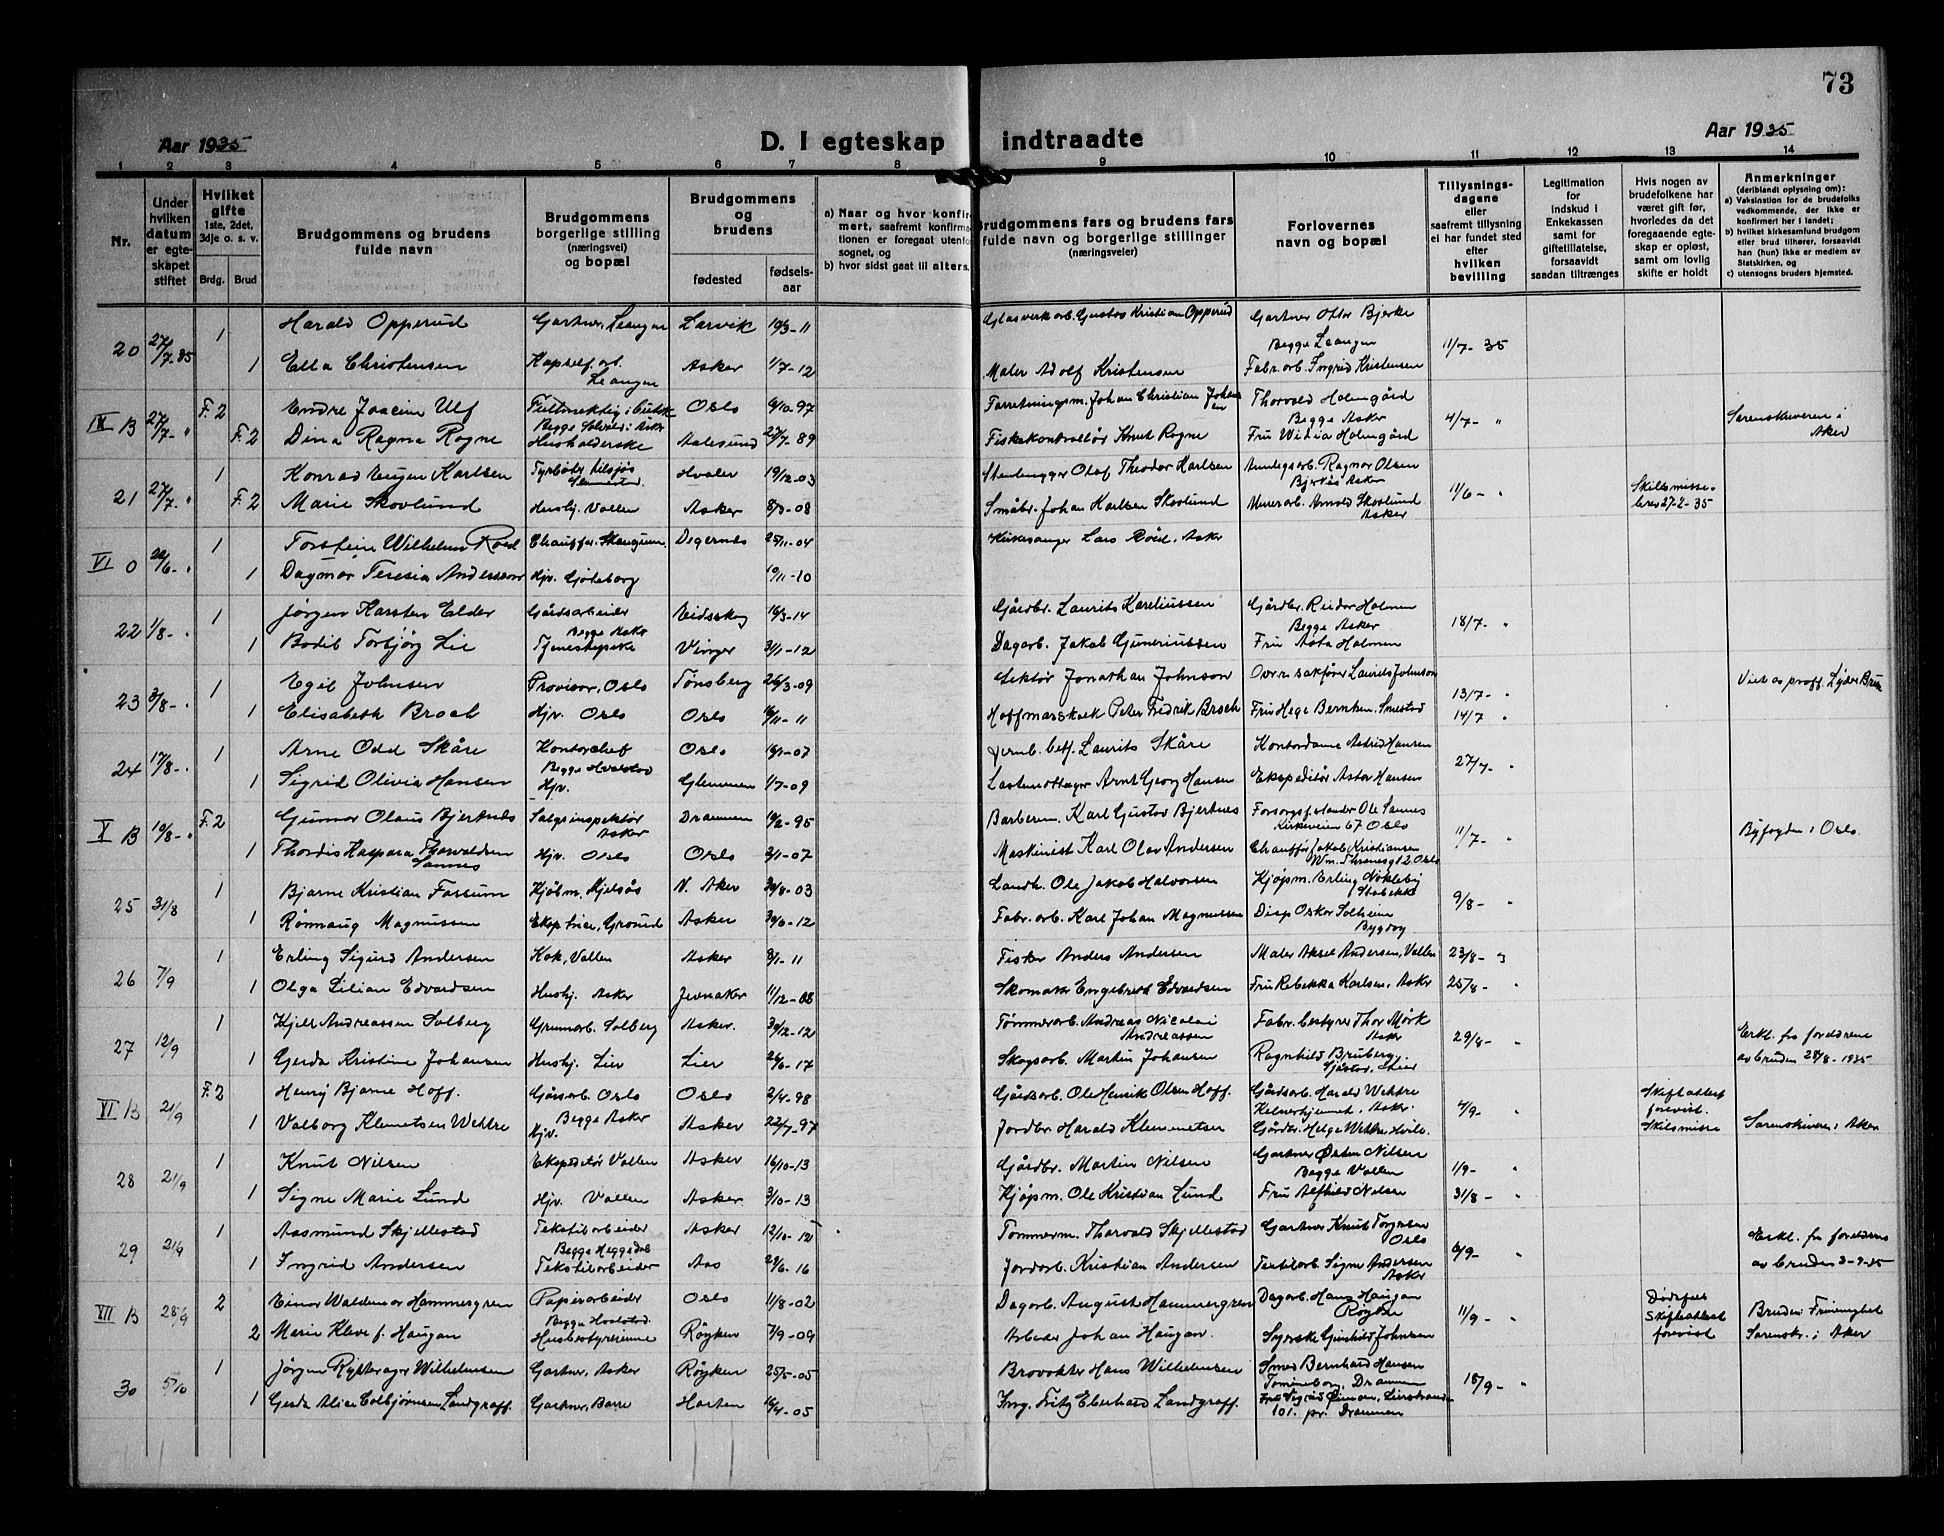 73
Aar 1935 D. I egteskap indtraadte Aar 1935
1 2 3 4 5 6 7 8 9 10 11 12 13 14
Nr.
Under hvilken datum er egteskapet stiftet
Hvilket gifte 1ste, 2det, 3dje o. s. v.
Brdg. Brud
Brudgommens og brudens fulde navn
Brudgommens borgerlige stilling (næringsvei) og bopæl
Brudgommens og brudens
fødested fødselsaar
a) Naar og hvor konfirmert, saafremt konfirmationen er foregaat utenfor sognet, og
b) hvor sidst gaat til alters.
Brudgommens fars og brudens fars fulde navn og borgerlige stillinger (næringsveier)
Forlovernes navn og bopæl
Tillysningsdagene eller saafremt tillysning ei har fundet sted efter hvilken bevilling
Legitimation for indskud i Enkekassen samt for giftetilllatelse, forsaavidt saadan tiltrænges
Hvis nogen av brudefolkene har været gift før, hvorledes da det foregaaende egteskap er opløst, samt om lovlig skifte er holdt
Anmerkninger (deriblandt oplysning om):
a) Vaksination for de brudefolks vedkommende, der ikke er konfirmert her i landet;
b) hvilket kirkesamfund brudgom eller brud tilhører, forsaavidt han (hun) ikke er medlem av Statskirken, og
c) utensogns bruders hjemsted.
20 27/7-35 1 Harald Opperud Gartner, Leangen Larvik 10/3-11 Glasverkarb. Gustav Kristian Opperud Gartner Ottar Bjerke
Begge Leangen 11/7-35
1 Ella Christensen Kapselfarb. Leangen Asker 1/7-12 Maler Adolf Kristensen Fabr. arb. Ingrid Kristensen
IX B 27/7- " F. 2 Endre Joacim Ulf Oslo 6/10-97 Forretningsm. Johan Christian Johansen Thorvald Holmgård
Begge Asker 4/7- " Sorenskriveren i Aker
F. 2 Dina Ragna Rogne Husholderske Aalesund 27/7-89 Fiskekontrollør Knut Rogne Fru Holmgård
21 27/7- " 1 Konrad Eugen Karlsen Slemmestad Hvaler 19/12-03 Stenhugger Olaf Theodor Karlsen Anlegsarb. Ragnar Olsen
Asker 11/6- " Skilsmissebrev 27-2-35
F. 2 Marie Skovlund Hushj. Vollen Asker 8/3-08 Småbr. Johan Karlsen Skovlund Murerarb. Arnold Skovlund Asker
VI 0 22/6- " 1 Torstein Wilhelm Roed Chauffør, Skaugum Degernes 25/11-04 Kirkesanger Lars Röed, Asker
1 Dagmar Teresia Andersson Hjv. Göteborg 10/11-10
22 1/8- " 1 Jørgen Karsten Elder Gårdsarbeider Eidsskog 16/3-14 Gårdbr. Laurits Kareliussen Gårdbr. Reidar Holmen
Begge Asker Begge Asker 18/7- "
1 Bodil Torbjørg Lie Tjenestepike Vinger 3/11-12 Dagarb. Jakob Gunerriussen Fru Asta Holmen
23 3/8- " 1 Egil Johnsen Provisor, Oslo Tønsberg 26/3-09 Lektor Jonathan Johnson Overrsakfører Laurits Johnson 13/7- " Viet av proff. Lyder Brun
1 Elisabeth Broch Hjv. Oslo Oslo 16/11-11 Hoffmarskalk Peter Fredrik Broch Frk Hege Berntsen, Smestad 14/7 "
24 17/8- " 1 Arne Odd Skåre Kontorchef Oslo 16/1-07 Jernb. betj. Laurits Skåre Kontordame Astrid Hansen
Begge Hvalstad 27/7- "
1 Sigrid Olivia Hansen Hjv. Glemmen 1/7-09 Arnt Georg Hansen Ekspeditør Astor Hansen
V B 10/8- " F. 2 Gunnar Olaus Bjertnes Salgsinspektør Asker Drammen 10/2-95 Barberm. Karl Gustav Bjertnes Forsorgsforstander Ole Sannes
Kirkeveien 67 Oslo 11/7- " Byfogden i Oslo.
1 Thordis Kaspara Thorvaldsen Sannes Hjv. Oslo Oslo 2/1-07 Maskinist Karl Olav Andersen Chauffør Jakob Kristiansen
Wm. Thranesg 12 Oslo
25 31/8 1 Bjarne Kristian Fossum Kjøbm. Kjelsås V. Aker 30/8-03 Landh. Ole Jakob Halvorsen Kjøpm. Erling Nökleby Stabekk 9/8- "
1 Rønnaug Magnussen Eksp.trise, Grorud Asker 30/6-12 Fabr. arb. Karl Johan Magnussen Disp Oskar Solheim Bygdøy
26 7/9 1 Erling Sigurd Andersen Kok, Vollen Asker 8/1-11 Fisker Anders Andersen Maler Aksel Andersen, Vollen 23/8- "
1 Olga Lilian Edvardsen Hushj. Asker Jevnaker 11/12-08 Skomaker Engebreth Edvardsen Fru Rebekka Karlsen, Asker 25/8- "
27 12/9 1 Kjell Andreassen Solberg Grunnarb. Solberg Asker. 30/12-12 Tømmerarb. Andreas Nicolai Andreassen Fabr. bestyrer Thor Mørk Asker 29/8- " Erkl. fra foreldrene
1 Gerda Kristine Johansen Hushj. Lier Lier 26/6-17 Skogsarb. Martin Johansen Ragnhild Bruberg, Lier av bruden 28/8-1935
VI B 21/9 F. 2 Henry Bjarne Hoff. Gårdsarb. Oslo Oslo 2/4-98 Gårdsarb. Ole Henrik Olsen Hoff. Gårdsarb. Harald Wettre
Begge Asker Asker. 4/9- " Skifteattest forevist. Skilsmisse Sorenskriveren i Aker
1 Valborg Klemetsen Wettre Hjv. Asker 22/7-97 Jordbr. Harald Klemmetsen Gårdbr. Helge Wettre
28 21/9 1 Knut Nilsen Ekspeditør Vollen Asker 16/10-13 Gårdbr. Martin Nilsen Gartner Østen Nilsen
Begge Vollen 1/9- "
1 Signe Marie Lund Hjv. Vollen Asker 3/10-13 Kjøpm. Ole Kristian Lund Fru Alfhild Nilsen 31/8- "
29 21/9 1 Aasmund Skjellestad Tekstilarbeider Asker 12/10-12 Tømmerm. Thorvald Skjellestad Gartner Knut Torgersen Oslo Erkl. fra foreldrene
Begge Heggedal 6/9- "
1 Ingrid Andersen Tekstilarbeider Aas 29/6-16 Jordarb. Kristian Andersen Textilarb. Signe Andersen Asker av bruden 3-9-35
VII B 28/9 2 Einar Waldemar Hammergren Papirarbeider Oslo 11/8-02 Dagarb. August Hammergren Dagarb. Hans Haugan Røyken 11/9- " Dødsfall Skifteattest forevist
2 Marie Kleve f. Haugan Husbestyrerinne Røyken 7/9-09 Arbeider Johan Haugan. Syerske Gunhild Johnsen Sorenskr. i Aker
30 5/10 1 Jørgen Rytterager Wilhelmsen Gartner, Asker Røyken 25/5-05 Hans Wilhelmsen Smed Bernhard Hansen
Drammen 18/9- "
1 Gerda Alice Colbjørnsen Landgraff. Gartner, Borre Horten 16/4-05 Ing. Fritz Eberhard Landgraff. Fru Sigrid Simon, Lierstranda
101. pr. Drammen